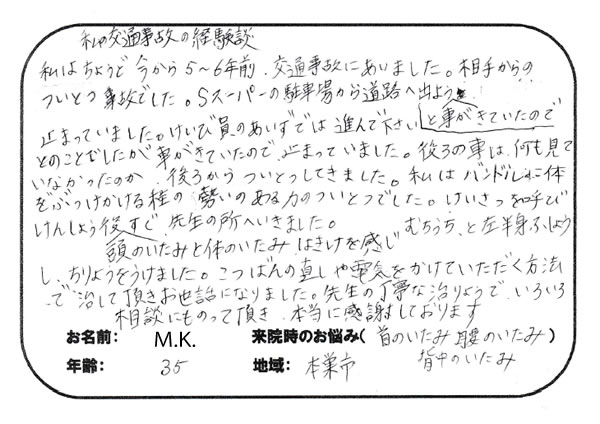 私の交通事故の経験談
私はちょうど今から5～6年前、交通事故にあいました。相手からの
ついとつ事故でした。Sスーパーの駐車場から道路へ出よう
と車がきていたので
止まっていました。けいび員のあいずでは進んで下さい
とのことでしたが車がきていたので、止まっていました。後ろの車は、何も見て
いなかったのか、後ろからついとつしてきました。私はハンドルに体
をぶつけかける程の勢いのある力のついとつでした。けいさつを呼び
けんしょう後すぐ、先生の所へいきました。
むちうち、と左半身ふしょう
頭のいたみと体のいたみはきけを感じ
し、ちりょうをうけました。こつばんの直しや電気をかけていただく方法
で治して頂きお世話になりました。先生の丁寧な治りょうで、いろいろ
相談にものって頂き、本当に感謝しております
お名前: M.K. 来院時のお悩み( 首のいたみ 腰のいたみ )
背中のいたみ
年齢: 35 地域: 本巣市